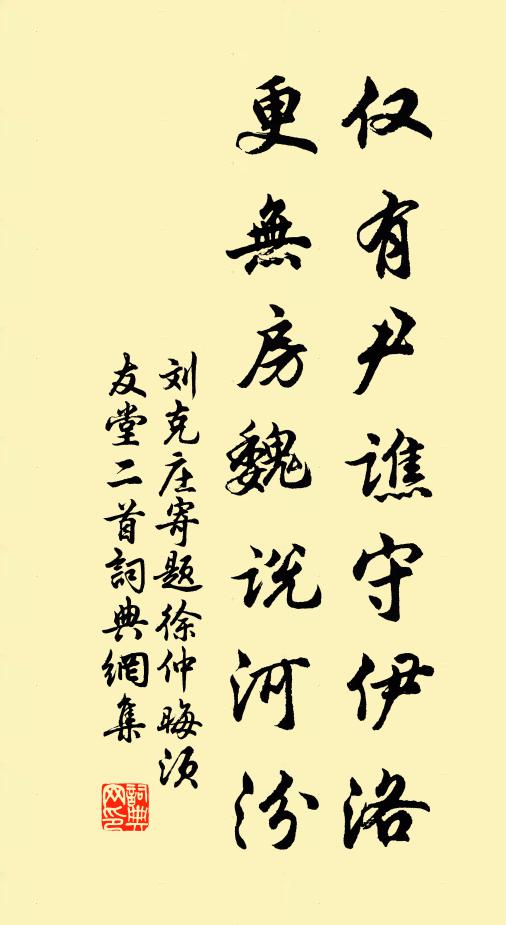 仅有尹谯守伊洛
更無房魏说河汾
刘克庄寄题徐仲晦须
友堂二首詞典網集
詞典
网印